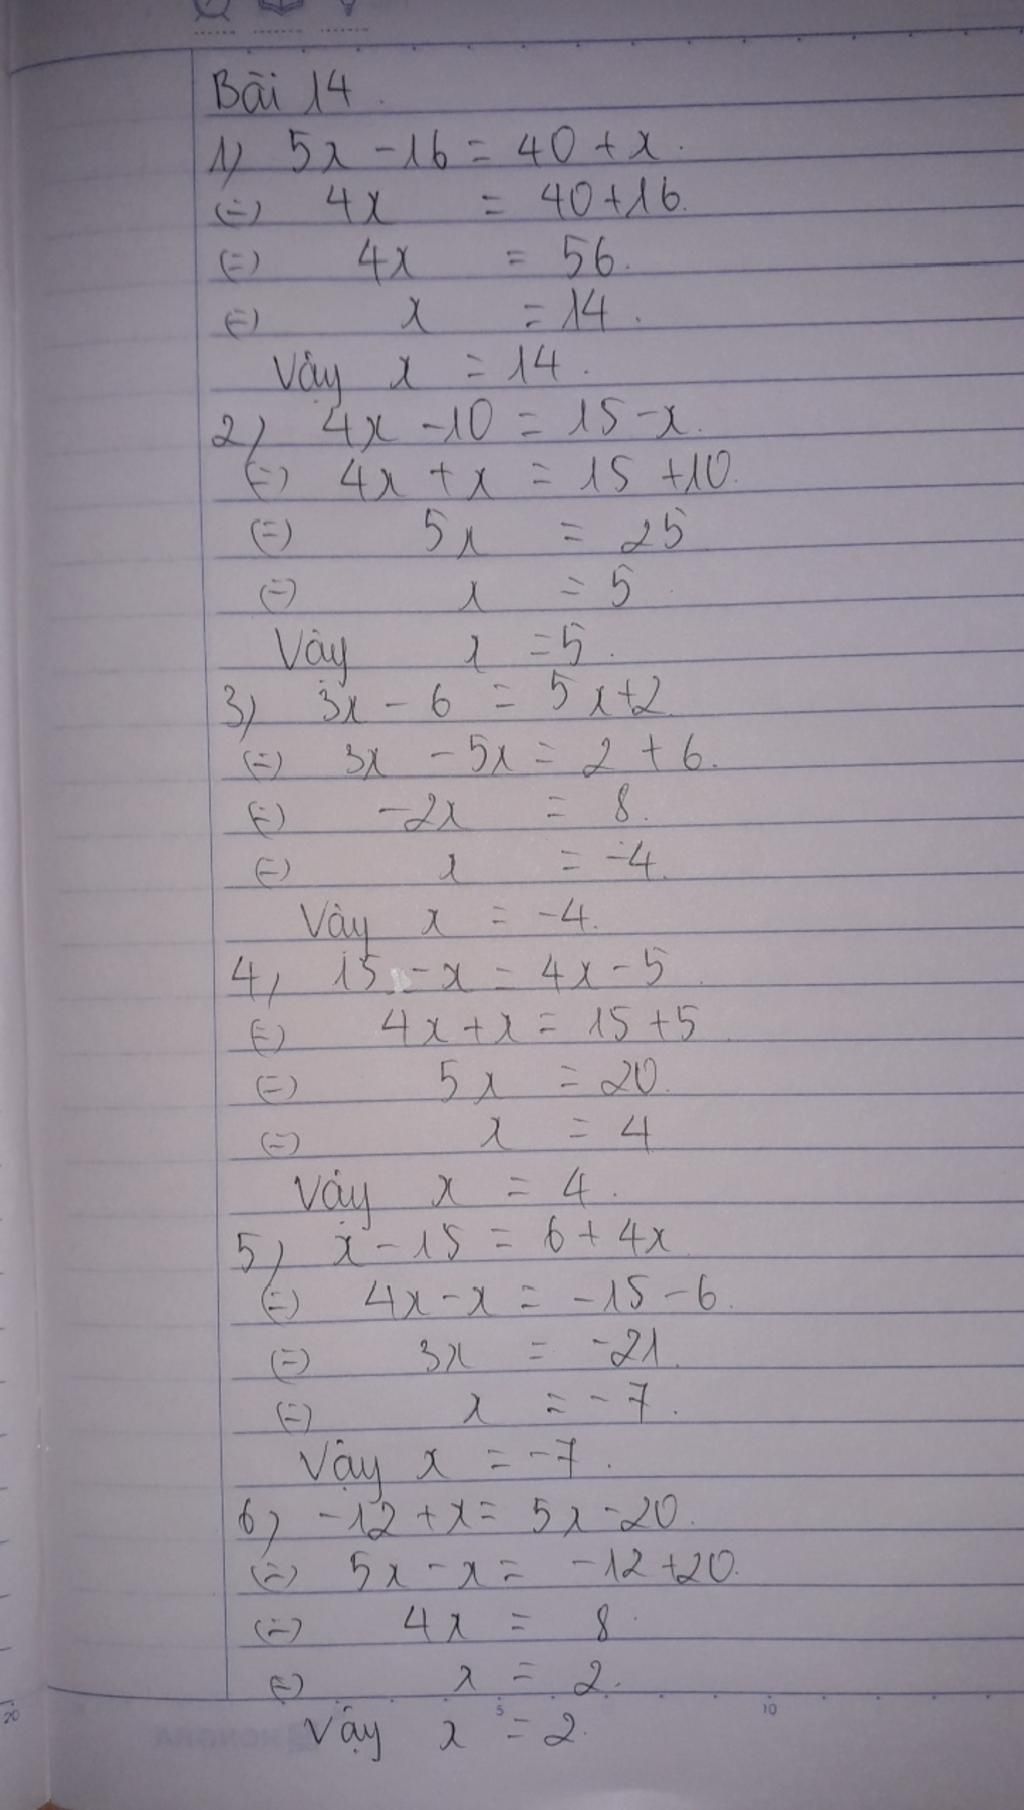 Bài 14.
1) 5x - 16 = 40 + x.
(=) 4x = 40 + 16.
(=) 4x = 56.
(=) x = 14.
Vậy x = 14.
2) 4x - 10 = 15 - x.
(=) 4x + x = 15 + 10.
(=) 5x = 25
(=) x = 5
Vậy x = 5.
3) 3x - 6 = 5x + 2
(=) 3x - 5x = 2 + 6.
(=) -2x = 8.
(=) x = -4.
Vậy x = -4.
4) 15 - x = 4x - 5
(=) 4x + x = 15 + 5
(=) 5x = 20.
(=) x = 4
Vậy x = 4.
5) x - 15 = 6 + 4x
(=) 4x - x = -15 - 6.
(=) 3x = -21.
(=) x = -7.
Vậy x = -7.
6) -12 + x = 5x - 20.
(=) 5x - x = -12 + 20.
(=) 4x = 8.
(=) x = 2.
20 5 10
Vậy x = 2.